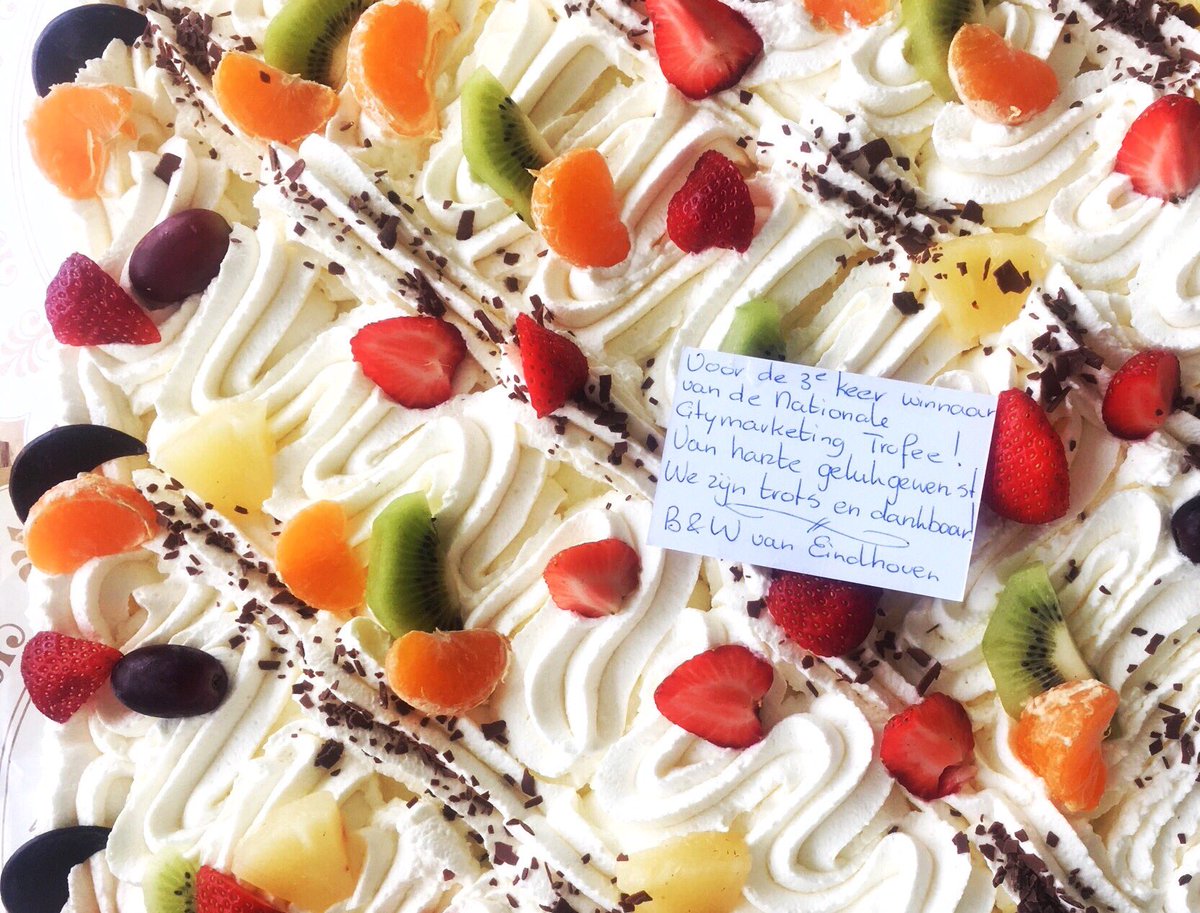 Voor de 3e keer winnaar
van de Nationale
Citymarketing Trofee!
Van harte gelukgewenst
We zijn trots en dankbaar
B&W van Eindhoven